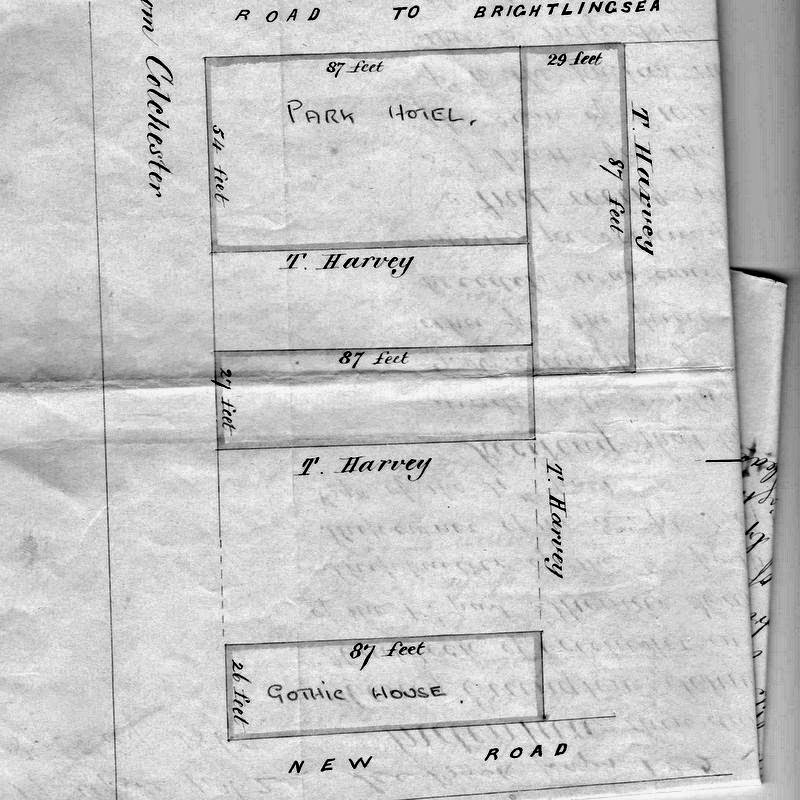 ROAD TO BRIGHTLINGSEA
Colchester
87 feet
29 feet
PARK HOTEL.
54 feet
87 feet
T. Harvey
T. Harvey
87 feet
27 feet
T. Harvey
T. Harvey
87 feet
26 feet
GOTHIC HOUSE.
NEW ROAD